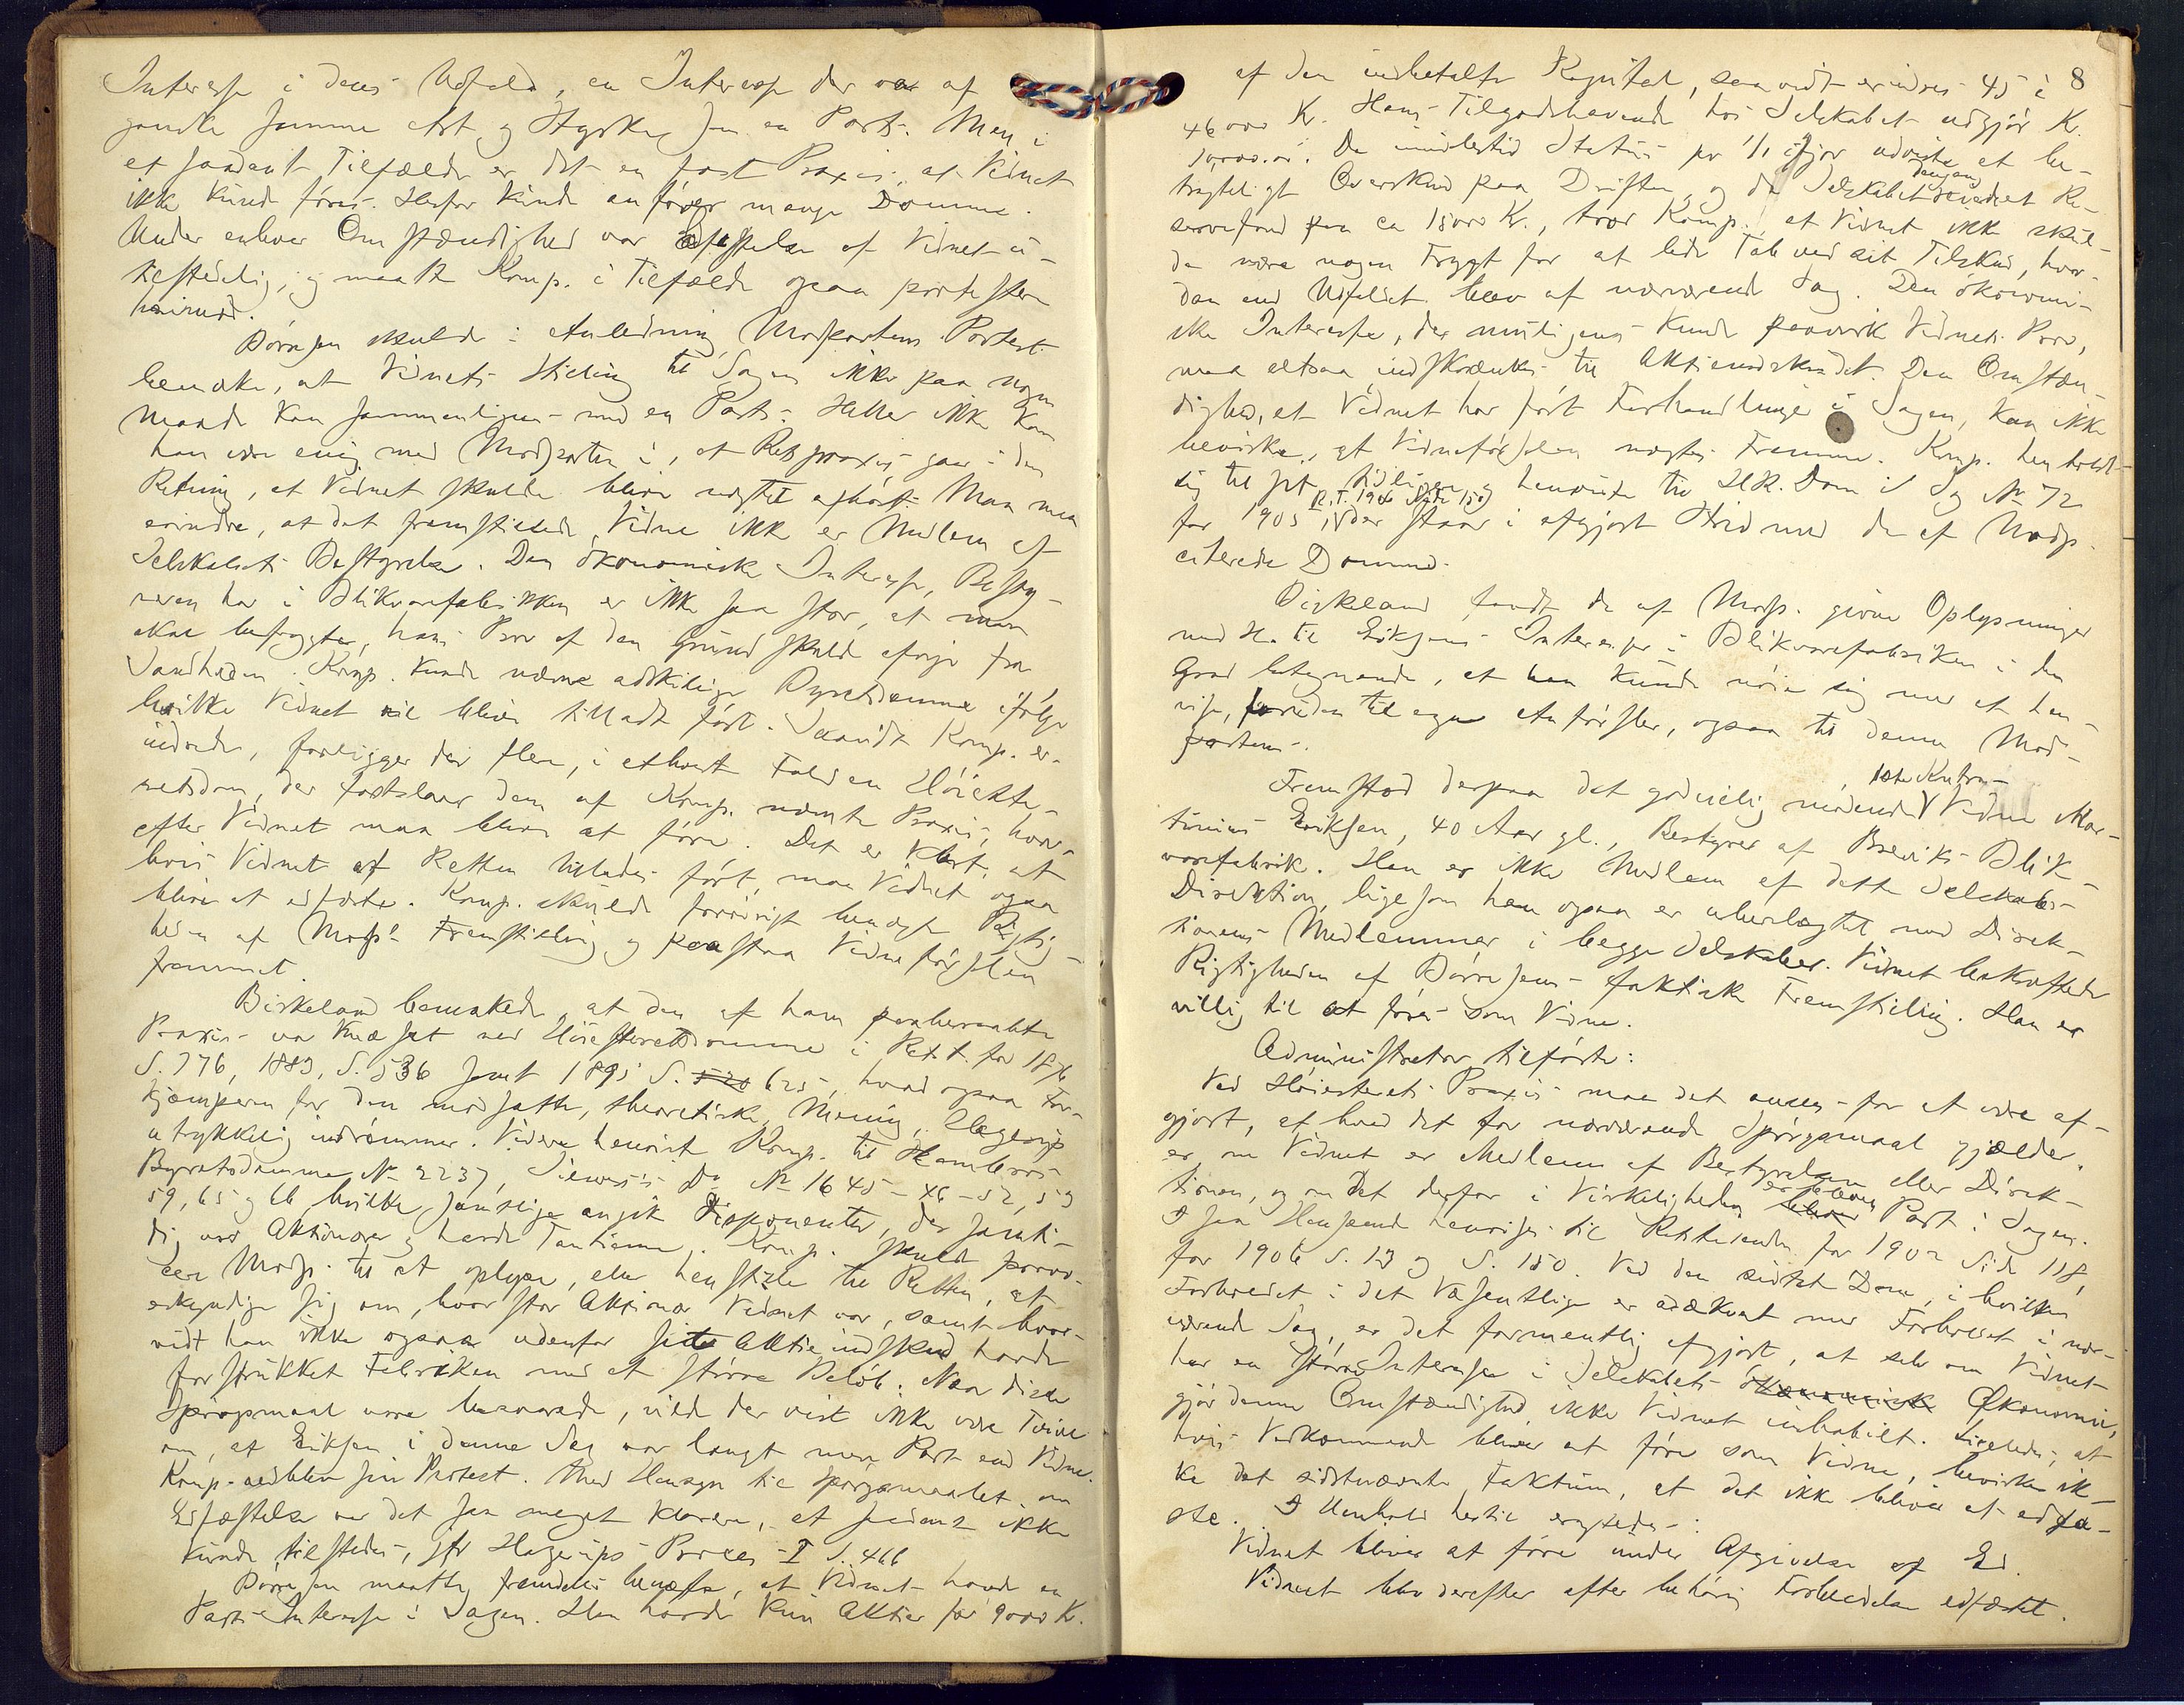 Interesse i dens Udfald, en Interesse der var af
ganske samme Art og Styrke som en Parts. Men i
et saadant Tilfælde er det en fast Praxis, at Vidnet
ikke kunde føres. Herfor kunde anføres mange Domme.
Under enhver Omstændighed var Edfæstelse af Vidnet u-
tilstedelig, og maatte Komp. i Tilfælde ogsaa protestere
herimod.
Dörrsen skulde i Anledning Modpartens Protest
bemærke, at Vidnets Stilling til Sagen ikke paa nogen
Maade kan sammenlignes med en Parts. Heller ikke kan
han være enig med Modparten i, at Retspraxis gaar i den
Retning, at Vidnet skulde blive nægtet afhørt. Man maa
erindre, at det fremstillede Vidne ikke er Medlem af
Selskabets Bestyrelse. Den økonomiske Interesse, Besty-
reren har i Blikvarefabrikken er ikke saa stor, at man
skal befrygte, hans Prov af den Grund skulde afvige fra
Sandheden. Komp. kunde nævne adskillige Byretsdomme ifølge
hvilke Vidnet vil blive tilladt ført. Saavidt Komp. er-
indrede, foreligger der flere, i ethvert Fald en Høieste-
retsdom, der fastslaar den af Komp. nævnte Praxis, hvor-
efter Vidnet maa blive at føre. Det er klart, at
hvis Vidnet af Retten tillades ført, maa Vidnet ogsaa
blive at edfæste. Komp. skulde forøvrigt benægte Rigtig-
heden af Modp.s Fremstilling og paastaa Vidneførslen
fremmet.
Birkeland bemærkede, at den af ham paaberaabte
Praxis var knæsat ved Høiesteretsdomme i Ret.t. for 1876
S. 776, 1883, S. 536 samt 1895 S. 520 625, hvad ogsaa For-
kjæmperen for den modsatte, theoretiske Mening, Hagerup
utrykkelig indrømmer. Videre henviste Komp. til Hambros
Byretsdomme No 2237, Do No 1645-46-52, 53
59, 65 og 66, hvilke samtlige angik Disponenter, der samti-
dig var Aktionærer og havde Tantieme. Komp. skulde provo-
cere Modp. til at oplyse, eller henstille til Retten, at
erkyndige sig om, hvor stor Aktionær Vidnet var, samt hvor-
vidt han ikke ogsaa udenfor sit Aktieindskud havde
forstrukket Fabriken med et større Beløb. Naar disse
Spørgsmaal vare besvarede, vilde der vist ikke være Tvivl
om, at Eriksen i denne Sag var langt mere Part end Vidne.
Komp. vedblev sin Protest. Med Hensyn til Spørgsmaalet om
Edfæstelse var det saa meget klarere, at saadant ikke
kunde tilstedes, jfr Hagerups Proces I S. 466
Dörrsen maatte fremdeles benægte, at Vidnet havde en
Parts Interesse i Sagen. Han havde kun Aktier for 9000 Kr.
8
af den indbetalte Kapital, saavidt erindres 45 à
46000 Kr. Hans Tilgodehavende hos Selskabet udgjør Kr.
10,000.00. Da imidlertid Status pr 1/1 ifjor udviste et be-
tragteligt Overskud paa Driften, og da Selskabet dengang havde et Re-
servefond paa ca 15000 Kr., tror Komp., at Vidnet ikke skul-
de nære nogen Frygt for at lide Tab ved sit Tilskud, hvor-
dan end Udfaldet blev af nærværende Sag. Den økonomi-
ske Interesse, der muligens kunde paavirke Vidnets Prov,
maa altsaa indskrænkes til Aktieindskudet. Den Omstæn-
dighed, at Vidnet har ført Forhandlinger i Sagen, kan ikke
bevirke, at Vidneførslen nægtes Fremme. Komp. henholdt
sig til sit tidligere og henviste til H.R. Dom i Sag No 72
for 1905 (R.T. 1906 Side 150) der staar i afgjort Strid med de af Modp.
citerede Domme.
Birkeland fandt de af Modp. givne Oplysninger
med H. til Eriksens Interesser i Blikvarefabriken i den
Grad betegnende, at han kunde nøie sig med at hen-
vise, foruden til egne Anførsler, ogsaa til denne Mod-
partens.
Fremstod derpaa det godvillig mødende 1ste Kontra- Vidne Mar-
tinius Eriksen, 40 Aar gl., Bestyrer af Breviks Blik-
varefabrik. Han er ikke Medlem af dette Selskabs
Direktion, ligesom han ogsaa er ubeslægtet med Direk-
tionens Medlemmer i begge Selskaber. Vidnet bekræftede
Rigtigheden af Dörrsens faktiske Fremstilling. Han er
villig til at føres som Vidne.
Administrator tilførte:
Ved Høiesterets Praxis maa det ansees for at være af-
gjort, at hvad det for nærværende Spørgsmaal gjælder,
er om Vidnet er Medlem af Bestyrelsen eller Direk-
tionen, og om det derfor i Virkeligheden er bleven Part i Sagen.
I saa Henseende henvises til Retstidende for 1902 Side 118,
for 1906 S. 13 og S. 150. Ved den sidste Dom, i hvilken
Forholdet i det Væsentlige er adækvat med Forholdet i nær-
værende Sag, er det formentlig afgjort, at selv om Vidnet
har en større Interesse i Selskabets økonomiske Økonomi,
gjør denne Omstændighed ikke Vidnet inhabilt. Ligeledes, at
hvis Vedkommende bliver at føre som Vidne, bevirker ik-
ke det sidstnævnte Faktum, at det ikke bliver at edfæ-
ste. I Henhold hertil eragtedes:
Vidnet bliver at føre under Afgivelse af Ed.
Vidnet blev derefter efter behørig Forberedelse edfæstet.